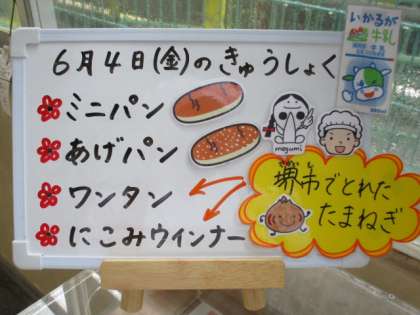 6月4日(金)のきゅうしょく
ミニパン
あげパン
ワンタン
にこみウインナー
いかるが
牛乳
megumi
堺市でとれた
さかいし
たまねぎ